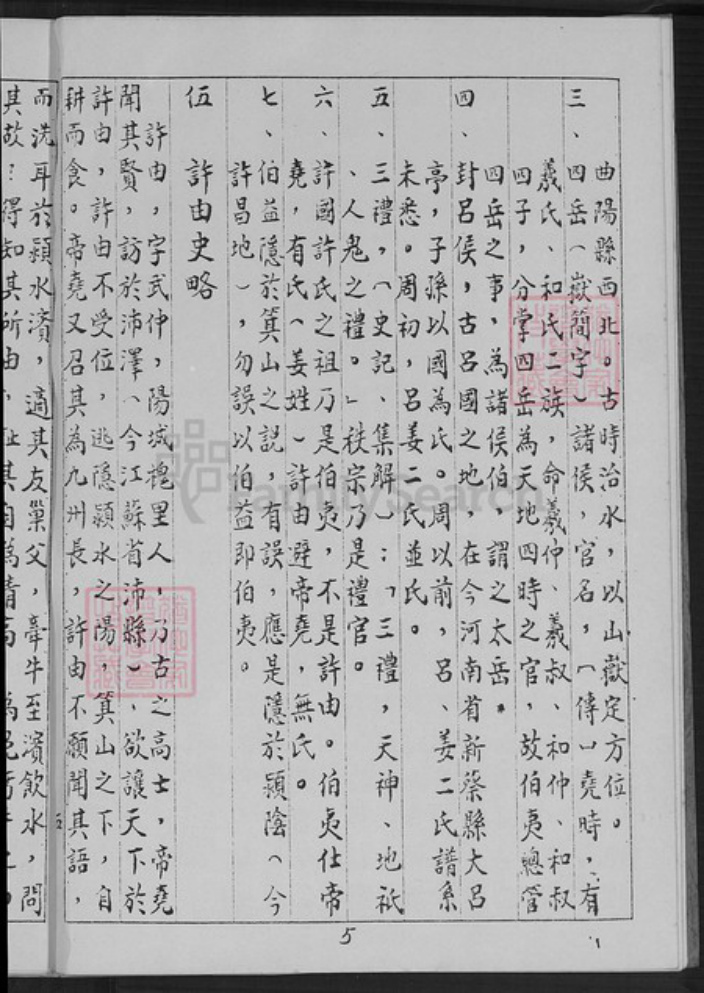 曲陽縣西北。古時治水，以山嶽定方位。
三、四岳（嶽簡字）諸侯，官名，（傳曰堯時，有
羲氏、和氏二族，命羲仲、羲叔、和仲、和叔
四子，分掌四岳為天地四時之官，故伯夷總管
四岳之事，為諸侯伯，謂之太岳。
四、封呂侯，古呂國之地，在今河南省新蔡縣大呂
亭，子孫以國為氏。周以前，呂、姜二氏譜系
未悉。周初，呂姜二氏並氏。
五、三禮，（史記、集解）：「三禮，天神、地祇
、人鬼之禮。」秩宗乃是禮官。
六、許國許氏之祖乃是伯夷，不是許由。伯夷仕帝
堯，有氏（姜姓）許由避帝堯，無氏。
七、伯益隱於箕山之説，有誤，應是隱於潁陰（今
許昌地），勿誤以伯益即伯夷。
伍 許由史略
許由，字武仲，陽城槐里人，乃古之高士，帝堯
聞其賢，訪於沛澤（今江蘇省沛縣）、欲讓天下於
許由，許由不受位，逃隱潁水之陽，箕山之下，自
耕而食。帝堯又召其為九州長，許由不願聞其語，
而洗耳於潁水濱，適其友巢父，牽牛至濱飲水，問
其故：得知其所由，
5
FamilySearch